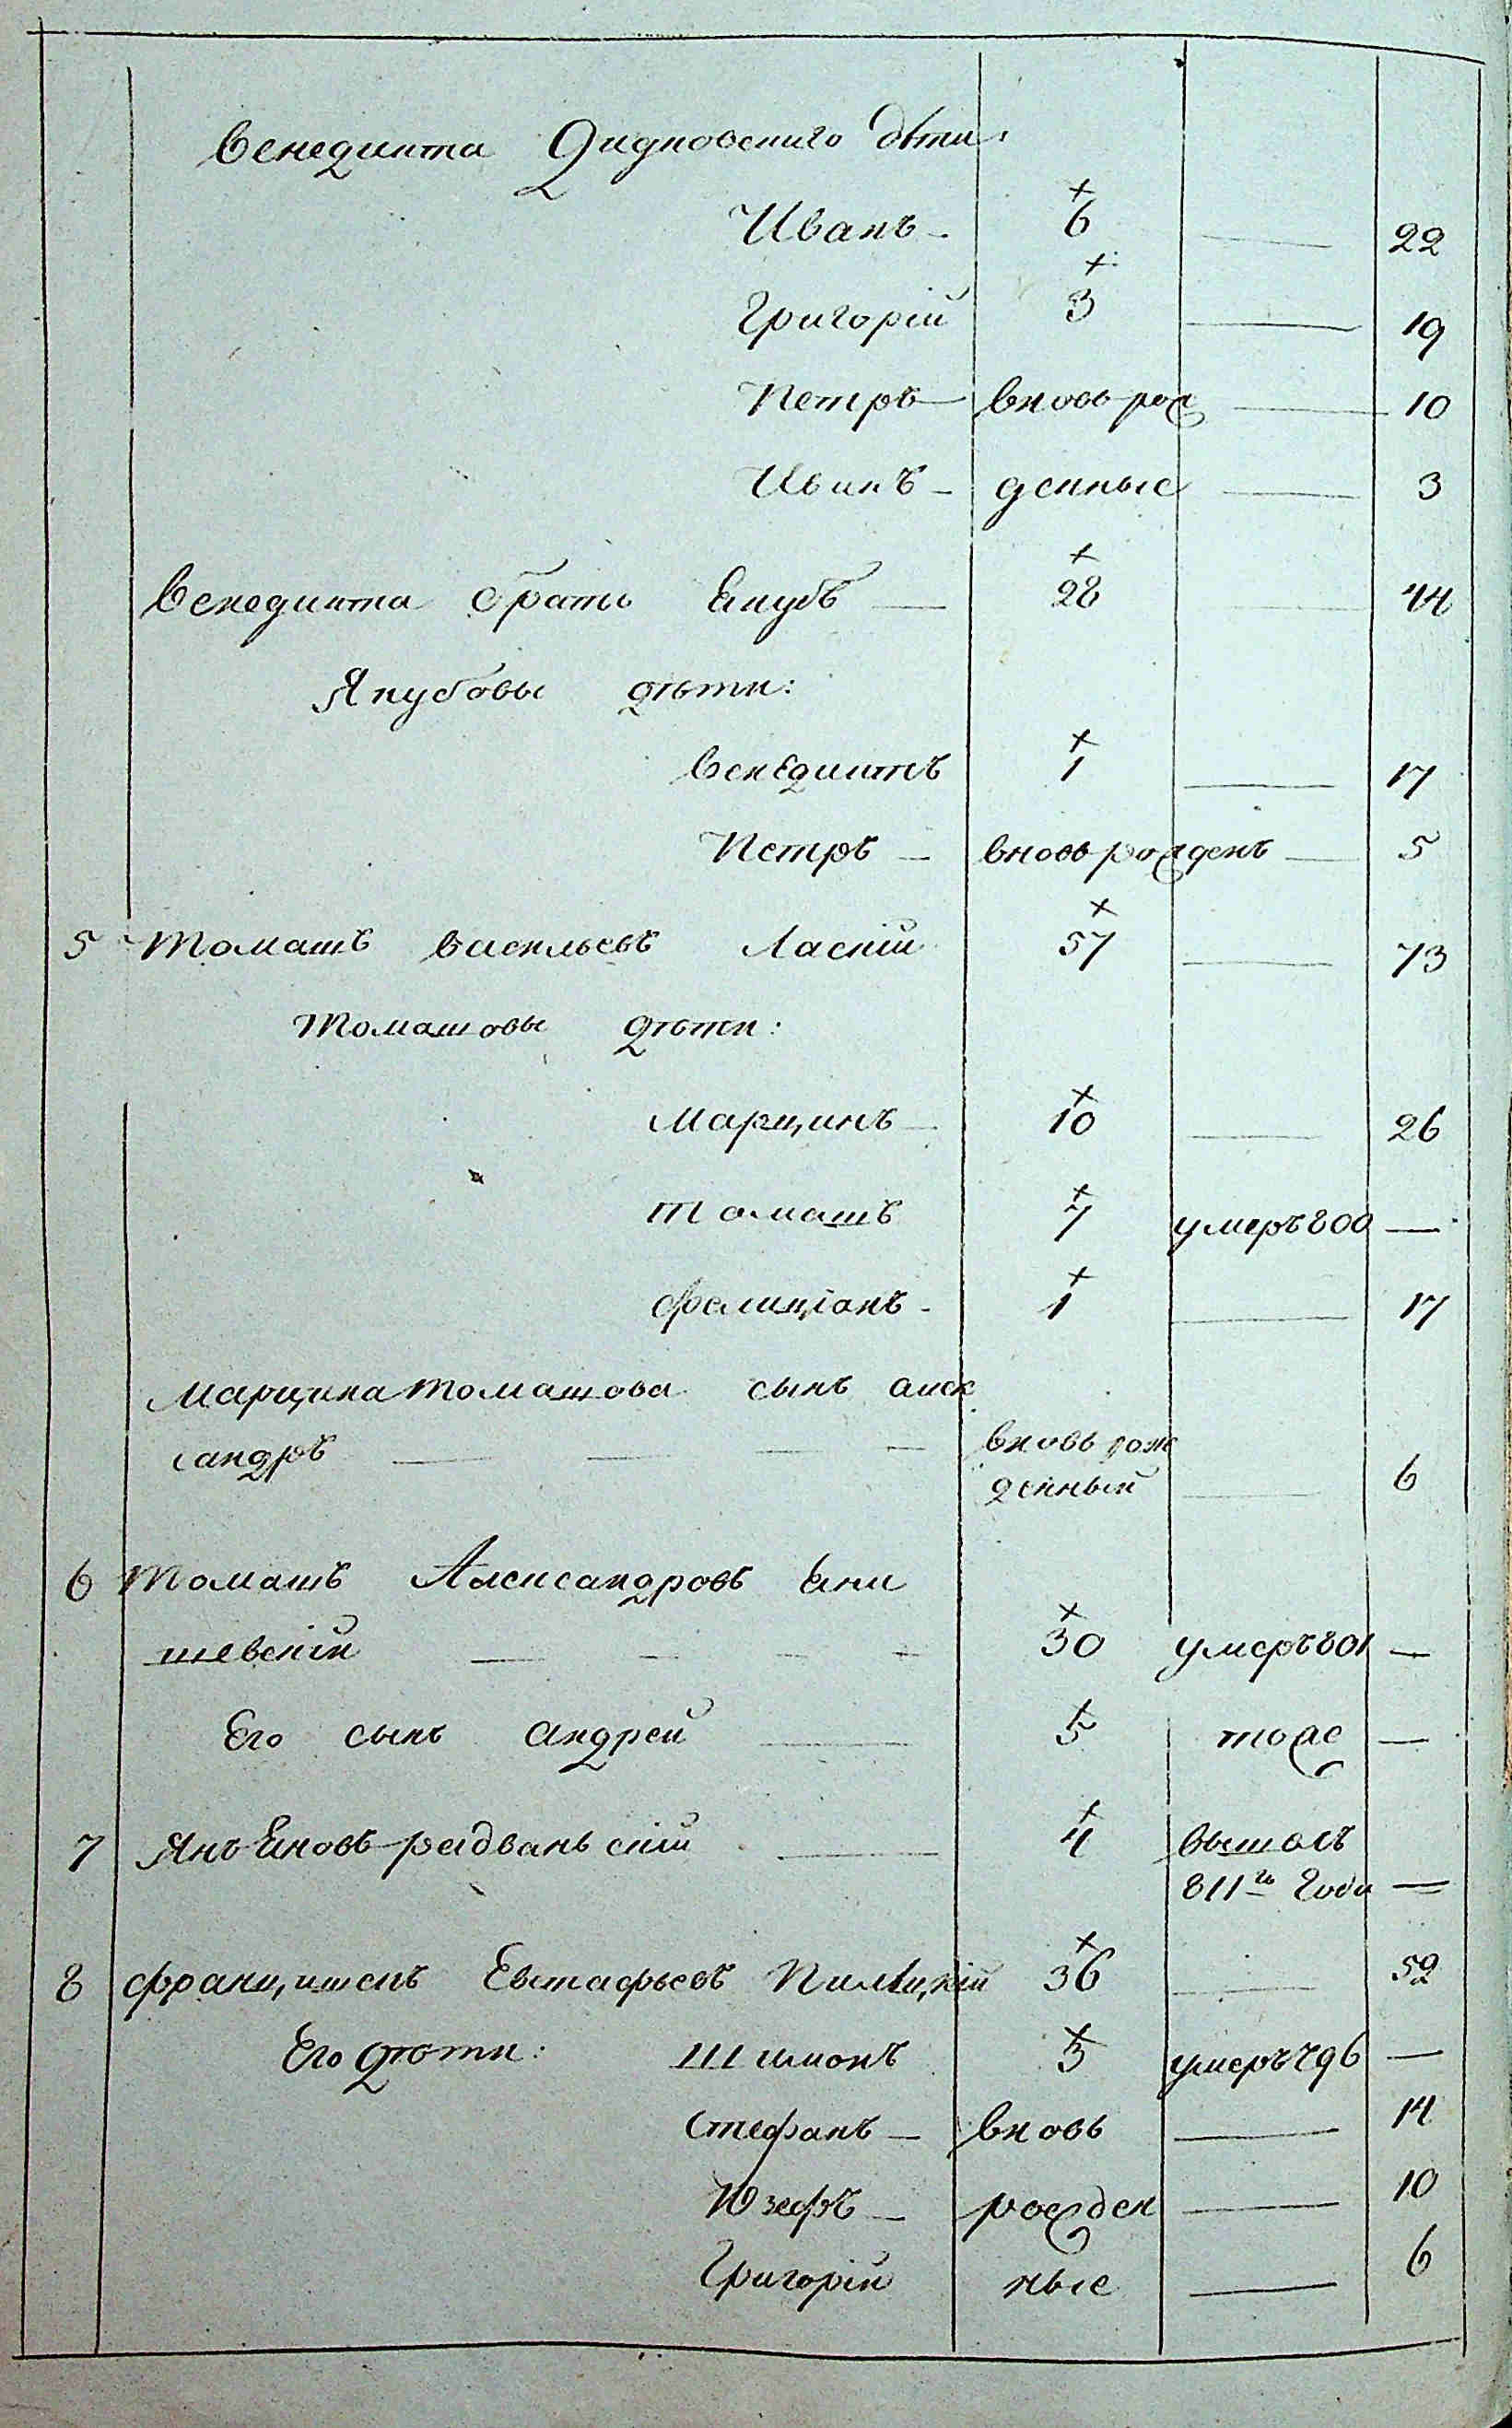 Венедикта Дидковскаго дѣти:
Иванъ - +6 — 22
Григорій +3 — 19
Петръ — вновь рож — 10
Иванъ - денные — 3
Венедикта братъ Якубъ — +28 — 44
Якубовы дѣти:
Венедиктъ +1 — 17
Петръ — вновь рожденъ — 5
5 Томашъ Васильевъ Ласкій +57 — 73
Томашовы дѣти:
Марцинъ — +10 — 26
Томашъ +7 умеръ 800 —
Фелиціанъ - +1 — 17
Марцина Томашова сынъ Алек
сандръ — — — вновь рож
денный — 6
6 Томашъ Александровъ Яни
шевскій — — — — +30 умеръ 801 —
Его сынъ Андрей — +5 тоже —
7 Янъ Яновъ Радваньскій — +4 вышолъ
811го Года —
8 Францишекъ Евстафьевъ Пилѣцкій +36 — 52
Его дѣти: Шимонъ +3 умеръ 796 —
Стефанъ — вновь — 14
Юзефъ — рожден — 10
Григорій ные — 6